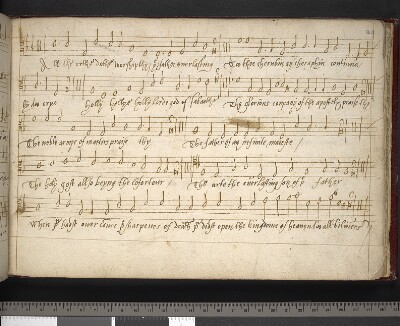 All the erthe doth worship the father everlasting To thee cherubin & seraphin continua
ly do crye holly hollye holly lorde god of sabaoth The glorious company of the apostles praise the
The noble armye of marters praise thy The father of an infinite maiestie
The holy gost also beyng the coforteur Thu arte the everlasting son of the father
When thu hadst over come the sharpenes of death thu didst open the kingdome of heaven to all belevers